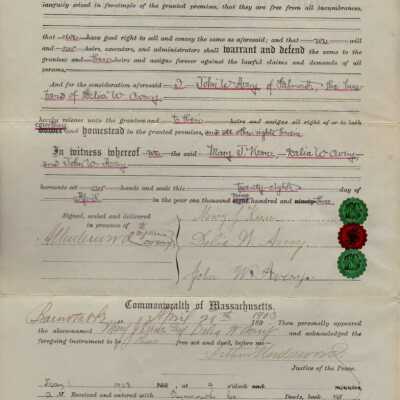 lawfully seized in fee-simple of the granted premises, that they are free from all incumbrances,
that we have good right to sell and convey the same as aforesaid; and that we will
and our heirs, executors, and administrators shall warrant and defend the same to the
grantees and their heirs and assigns forever against the lawful claims and demands of all
persons.
And for the consideration aforesaid I John W Avery of Falmouth, the hus
band of Delia W Avery
hereby release unto the grantees and to their heirs and assigns all right of or to both
curtesy
dower and homestead in the granted premises, and all other rights therein
In witness whereof we the said Mary J. Delia W Avery
and John W Avery
hereunto set our hands and seals this twenty eighth day of
April in the year one thousand nine hundred and three
Signed, sealed and delivered
in presence of
Mary J
Delia W. Avery
John W. Avery
Commonwealth of Massachusetts.
Barnstable April 28th 1903 Then personally appeared
the abovenamed Mary J Delia W Avery and acknowledged the
foregoing instrument to be their free act and deed, before me
Justice of the Peace.
1903 at 9 o'clock and minutes
A M. Received and entered with Deeds, book